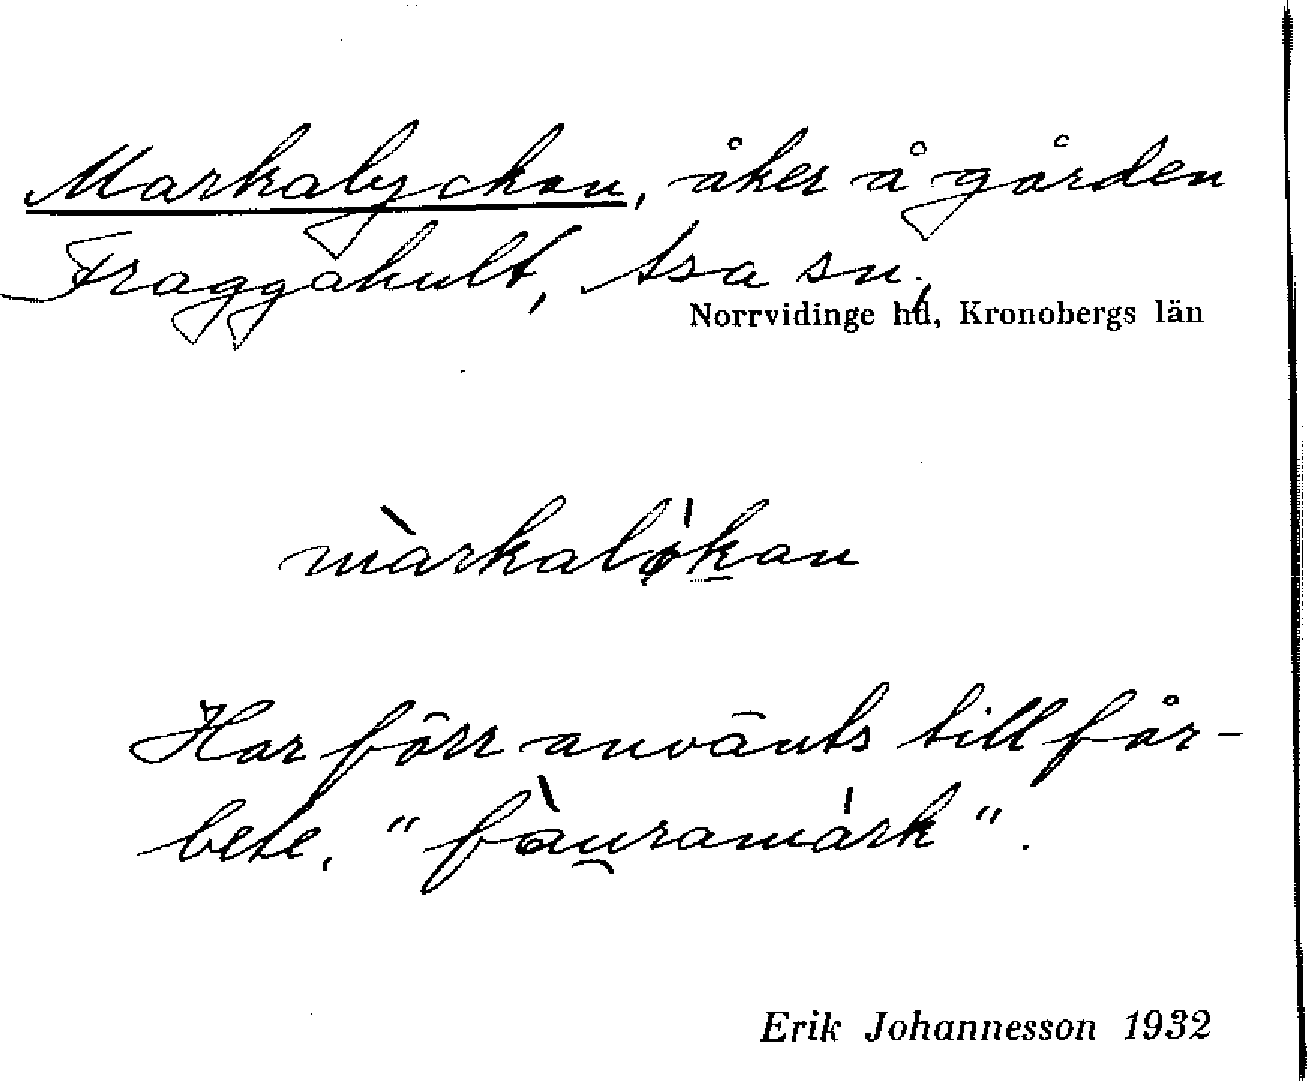 Markalyckan, åker å gården
Fraggahult, tsa sn,
Norrvidinge hd, Kronobergs län
màrkaló̜kan
Har förr använts till får-
bete. "fàu̯ramárk".
Erik Johannesson 1932